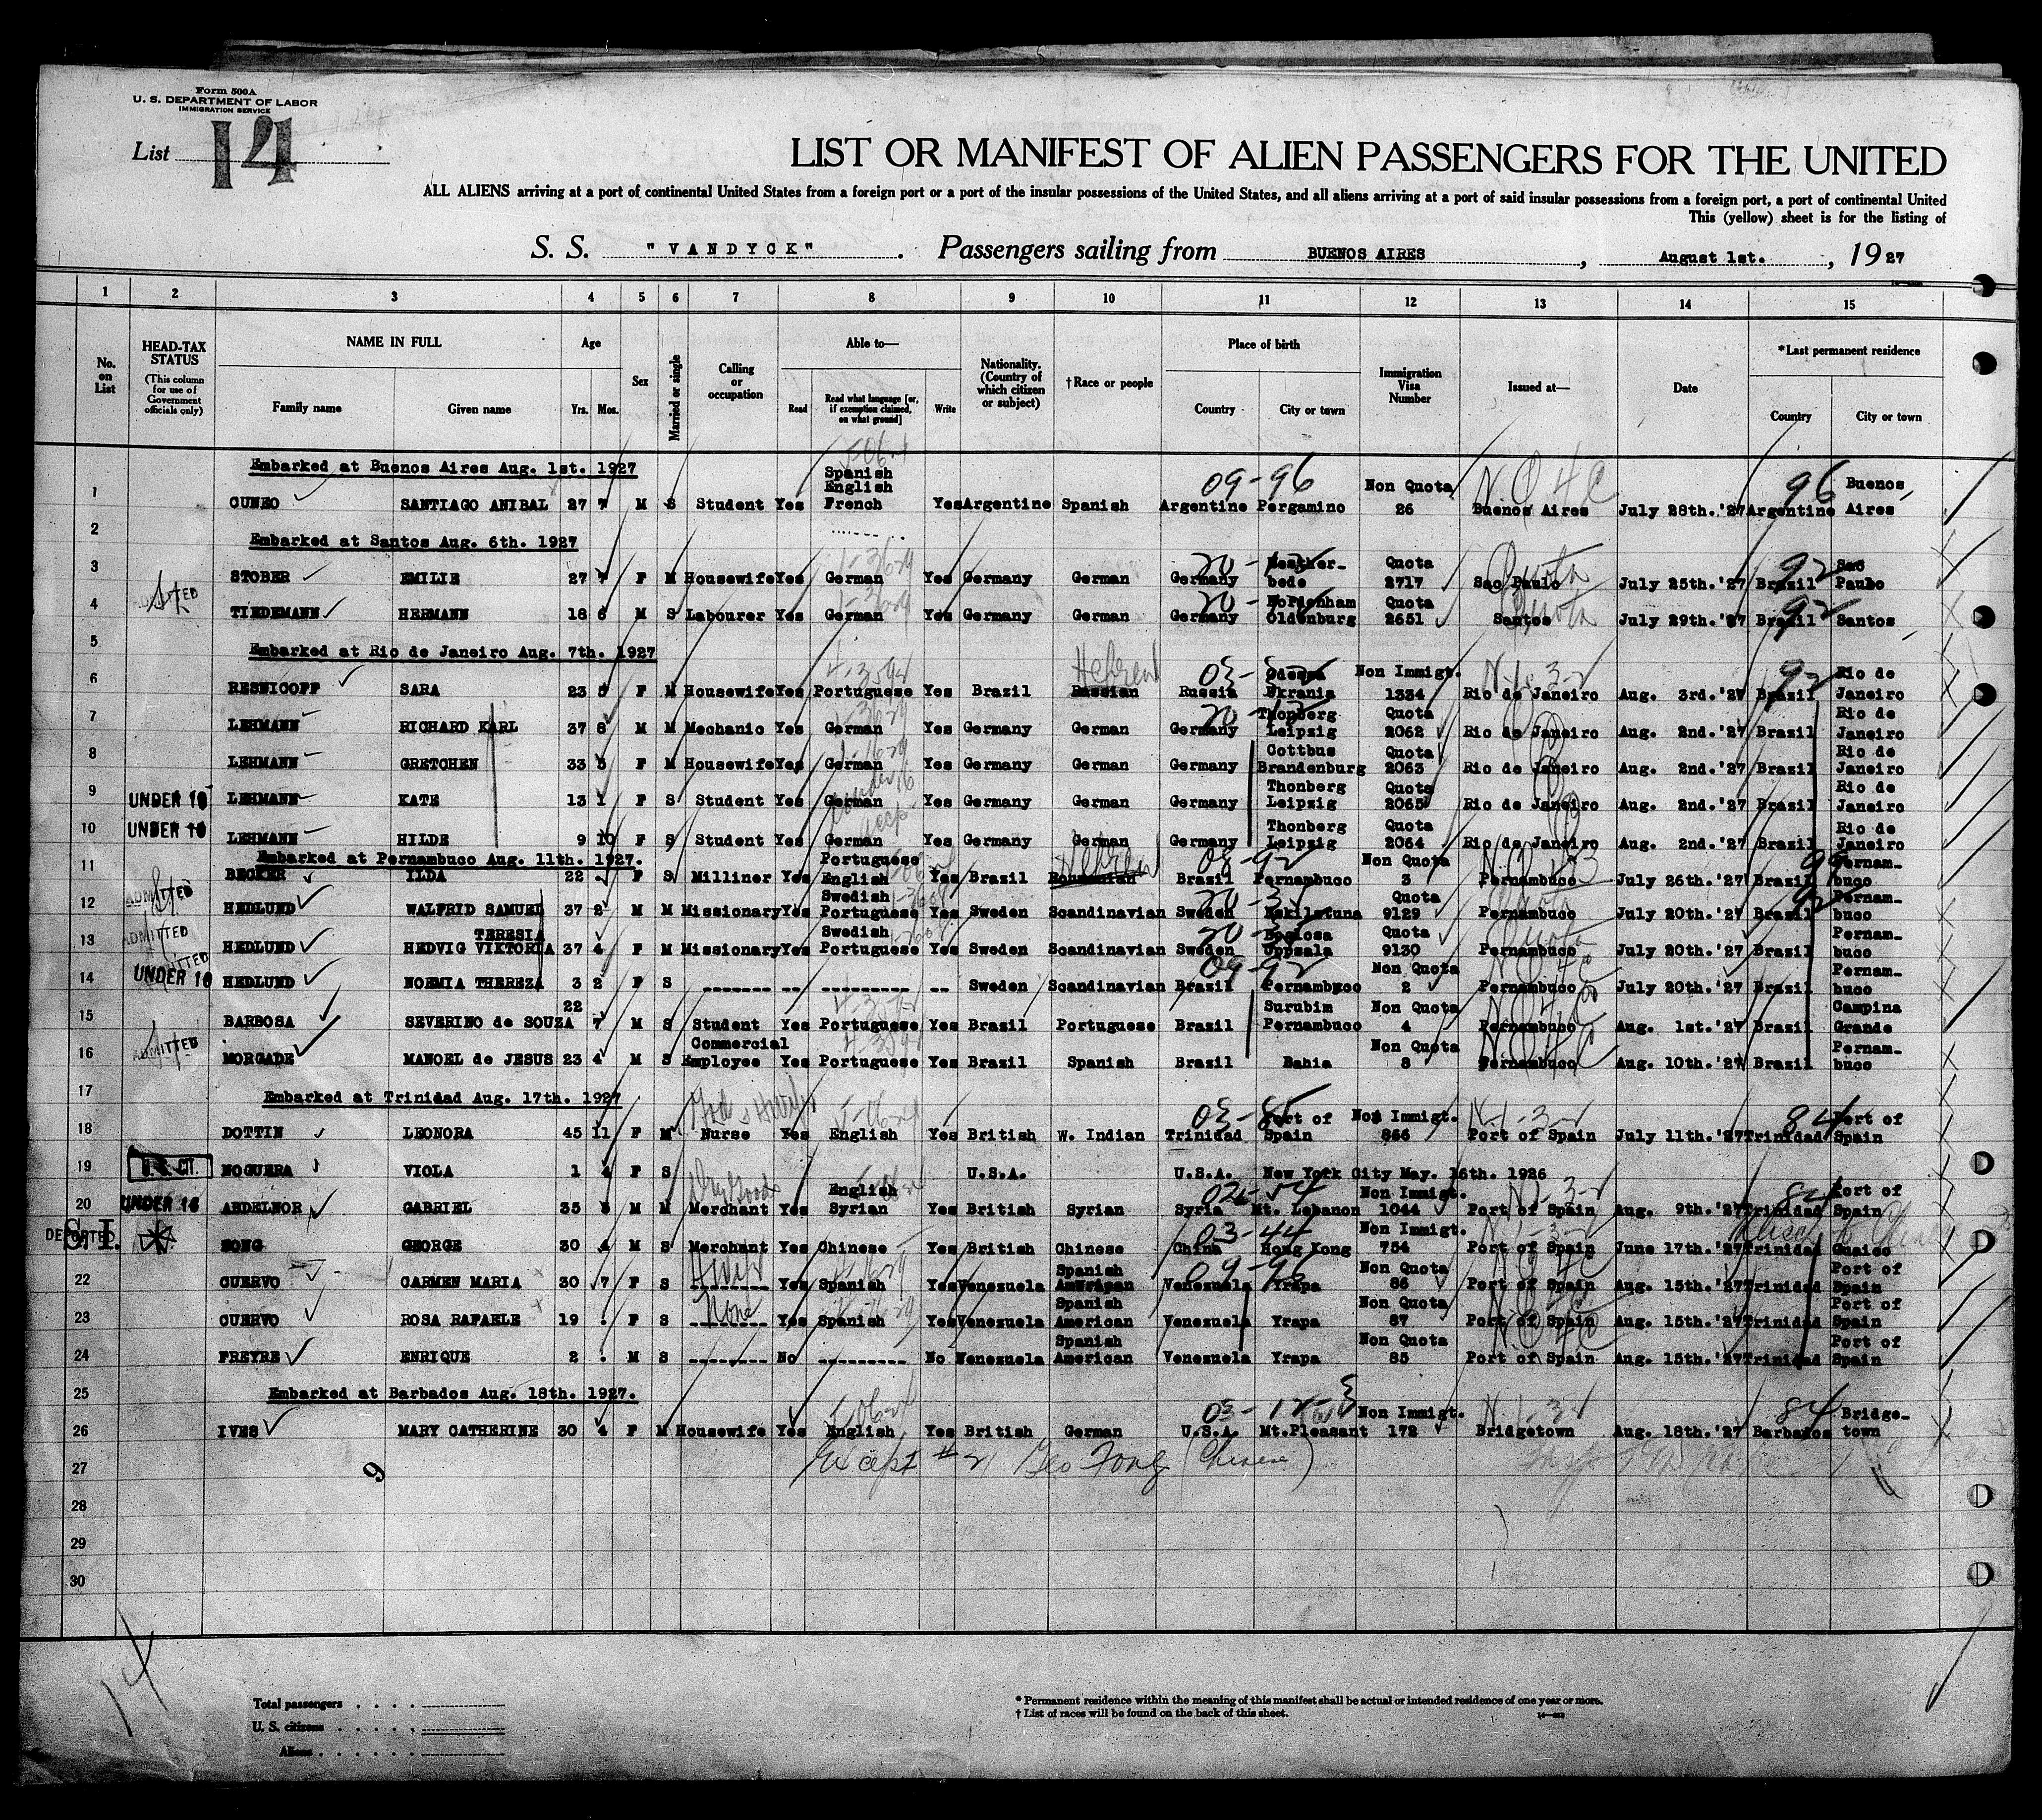 Form 500A
U. S. DEPARTMENT OF LABOR
IMMIGRATION SERVICE
List 14
LIST OR MANIFEST OF ALIEN PASSENGERS FOR THE UNITED
ALL ALIENS arriving at a port of continental United States from a foreign port or a port of the insular possessions of the United States, and all aliens arriving at a port of said insular possessions from a foreign port, a port of continental United
This (yellow) sheet is for the listing of
S. S. "VANDYCK". Passengers sailing from BUENOS AIRES, August 1st., 1927
1 2 3 4 5 6 7 8 9 10 11 12 13 14 15
No. on List
HEAD-TAX STATUS
(This column for use of Government officials only)
NAME IN FULL
Family name Given name
Age
Yrs. Mos.
Sex
Married or single
Calling or occupation
Able to—
Read
Read what language [or, if exemption claimed, on what ground]
Write
Nationality. (Country of which citizen or subject)
†Race or people
Place of birth
Country City or town
Immigration Visa Number
Issued at—
Date
*Last permanent residence
Country City or town
Embarked at Buenos Aires Aug. 1st. 1927
1 CUNEO SANTIAGO ANIBAL 27 7 M S Student Yes Spanish English French Yes Argentine Spanish Argentine Pergamino Non Quota 26 Buenos Aires July 28th. '27 Argentine Buenos Aires
09-96 N O 4 C 96
2
Embarked at Santos Aug. 6th. 1927
3 STOBER EMILIE 27 F M Housewife Yes German Yes Germany German Germany Quota 2717 Sao Paulo July 25th. '27 Brazil Sao Paulo
Quota 92
4 TIEDEMANN HERMANN 18 6 M S Labourer Yes German Yes Germany German Germany Nordenham Oldenburg Quota 2651 Santos July 29th. '27 Brazil Santos
Quota 92
5
Embarked at Rio de Janeiro Aug. 7th. 1927
6 RESNICOFF SARA 23 5 F M Housewife Yes Portuguese Yes Brazil Russian Russia Odessa Ukrania Non Immigt. 1334 Rio de Janeiro Aug. 3rd. '27 Brazil Rio de Janeiro
Hebrew 92
7 LEHMANN RICHARD KARL 37 8 M M Mechanic Yes German Yes Germany German Germany Thonberg Leipzig Quota 2062 Rio de Janeiro Aug. 2nd. '27 Brazil Rio de Janeiro
8 LEHMANN GRETCHEN 33 3 F M Housewife Yes German Yes Germany German Germany Cottbus Brandenburg Quota 2063 Rio de Janeiro Aug. 2nd. '27 Brazil Rio de Janeiro
9 UNDER 16 LEHMANN KATE 13 1 F S Student Yes German Yes Germany German Germany Thonberg Leipzig Quota 2065 Rio de Janeiro Aug. 2nd. '27 Brazil Rio de Janeiro
under 16
10 UNDER 16 LEHMANN HILDE 9 10 F S Student Yes German Yes Germany German Germany Thonberg Leipzig Quota 2064 Rio de Janeiro Aug. 2nd. '27 Brazil Rio de Janeiro
Embarked at Pernambuco Aug. 11th. 1927.
11 BECKER ILDA 22 F S Milliner Yes Portuguese English Yes Brazil Roumanian Brazil Pernambuco Non Quota 3 Pernambuco July 26th. '27 Brazil Pernambuco
Hebrew
12 ADMITTED HEDLUND WALFRID SAMUEL 37 2 M M Missionary Yes Swedish Portuguese Yes Sweden Scandinavian Sweden Eskilstuna Quota 9129 Pernambuco July 20th. '27 Brazil Pernambuco
13 ADMITTED HEDLUND HEDVIG VIKTORIA TERESIA 37 4 F M Missionary Yes Swedish Portuguese Yes Sweden Scandinavian Sweden Uppsala Quota 9130 Pernambuco July 20th. '27 Brazil Pernambuco
14 ADMITTED UNDER 16 HEDLUND NOEMIA THEREZA 3 2 F S Sweden Scandinavian Brazil Pernambuco Non Quota 2 Pernambuco July 20th. '27 Brazil Pernambuco
09-92
15 BARBOSA SEVERINO de SOUZA 22 7 M S Student Yes Portuguese Yes Brazil Portuguese Brazil Surubim Pernambuco Non Quota 4 Pernambuco Aug. 1st. '27 Brazil Campina Grande
16 ADMITTED MORGADE MANOEL de JESUS 23 4 M S Commercial Employee Yes Portuguese Yes Brazil Spanish Brazil Bahia Non Quota 8 Pernambuco Aug. 10th. '27 Brazil Pernambuco
17
Embarked at Trinidad Aug. 17th. 1927
18 DOTTIN LEONORA 45 11 F M Nurse Yes English Yes British W. Indian Trinidad Port of Spain Non Immigt. 866 Port of Spain July 11th. '27 Trinidad Port of Spain
84
19 U.S. CIT. NOGUERA VIOLA 1 4 F S U.S.A. U.S.A. New York City May. 16th. 1926
20 UNDER 16 ABDELNOR GABRIEL 35 M M Merchant Yes English Syrian Yes British Syrian Syria Mt. Lebanon Non Immigt. 1044 Port of Spain Aug. 9th. '27 Trinidad Port of Spain
Dry Goods 84
DEPORTED S.I. GEORGE 30 4 M S Merchant Yes Chinese Yes British Chinese China Hong Kong Non Immigt. 754 Port of Spain June 17th. '27 Trinidad Guaico
03-44
22 CUERVO CARMEN MARIA 30 7 F S Yes Spanish Yes Venezuela Spanish American Venezuela Yrapa Non Quota 86 Port of Spain Aug. 15th. '27 Trinidad Port of Spain
H Wife 09-96
23 CUERVO ROSA RAFAELE 19 F S Yes Spanish Yes Venezuela Spanish American Venezuela Yrapa Non Quota 87 Port of Spain Aug. 15th. '27 Trinidad Port of Spain
None
24 FREYRE ENRIQUE 2 M S No No Venezuela Spanish American Venezuela Yrapa Non Quota 85 Port of Spain Aug. 15th. '27 Trinidad Port of Spain
25
Embarked at Barbados Aug. 18th. 1927.
26 IVES MARY CATHERINE 30 4 F M Housewife Yes English Yes British German U.S.A. Mt.Pleasant Non Immigt. 172 Bridgetown Aug. 18th. '27 Barbados Bridgetown
84
27 Except #21 Geo Fong (Chinese)
9
28
29
30
14
Total passengers . . . .
U. S. citizens . . . . .
Aliens . . . . . .
* Permanent residence within the meaning of this manifest shall be actual or intended residence of one year or more.
† List of races will be found on the back of this sheet.